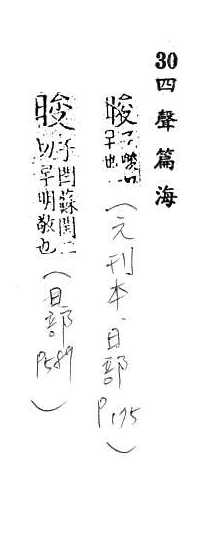 30四聲篇海
晙子峻切早也(元刊本.日部P175)
晙子閏蘇閏二切早明敬也(日部P589)